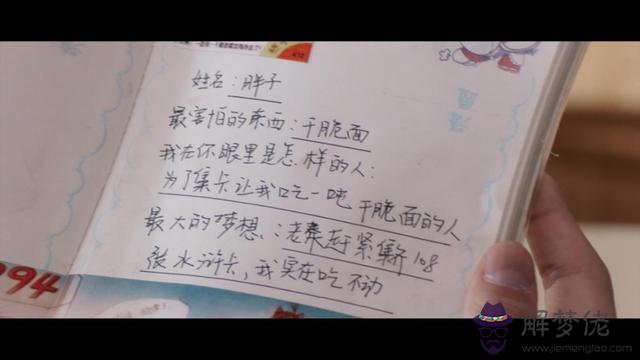 姓名:胖子
最害怕的东西:干脆面
我在你眼里是怎样的人:
为了集卡让我吃一吨干脆面的人
最大的梦想:老秦赶紧集齐108
张水浒卡,我实在吃不动
994
解梦佬
www.jiemenglao.com